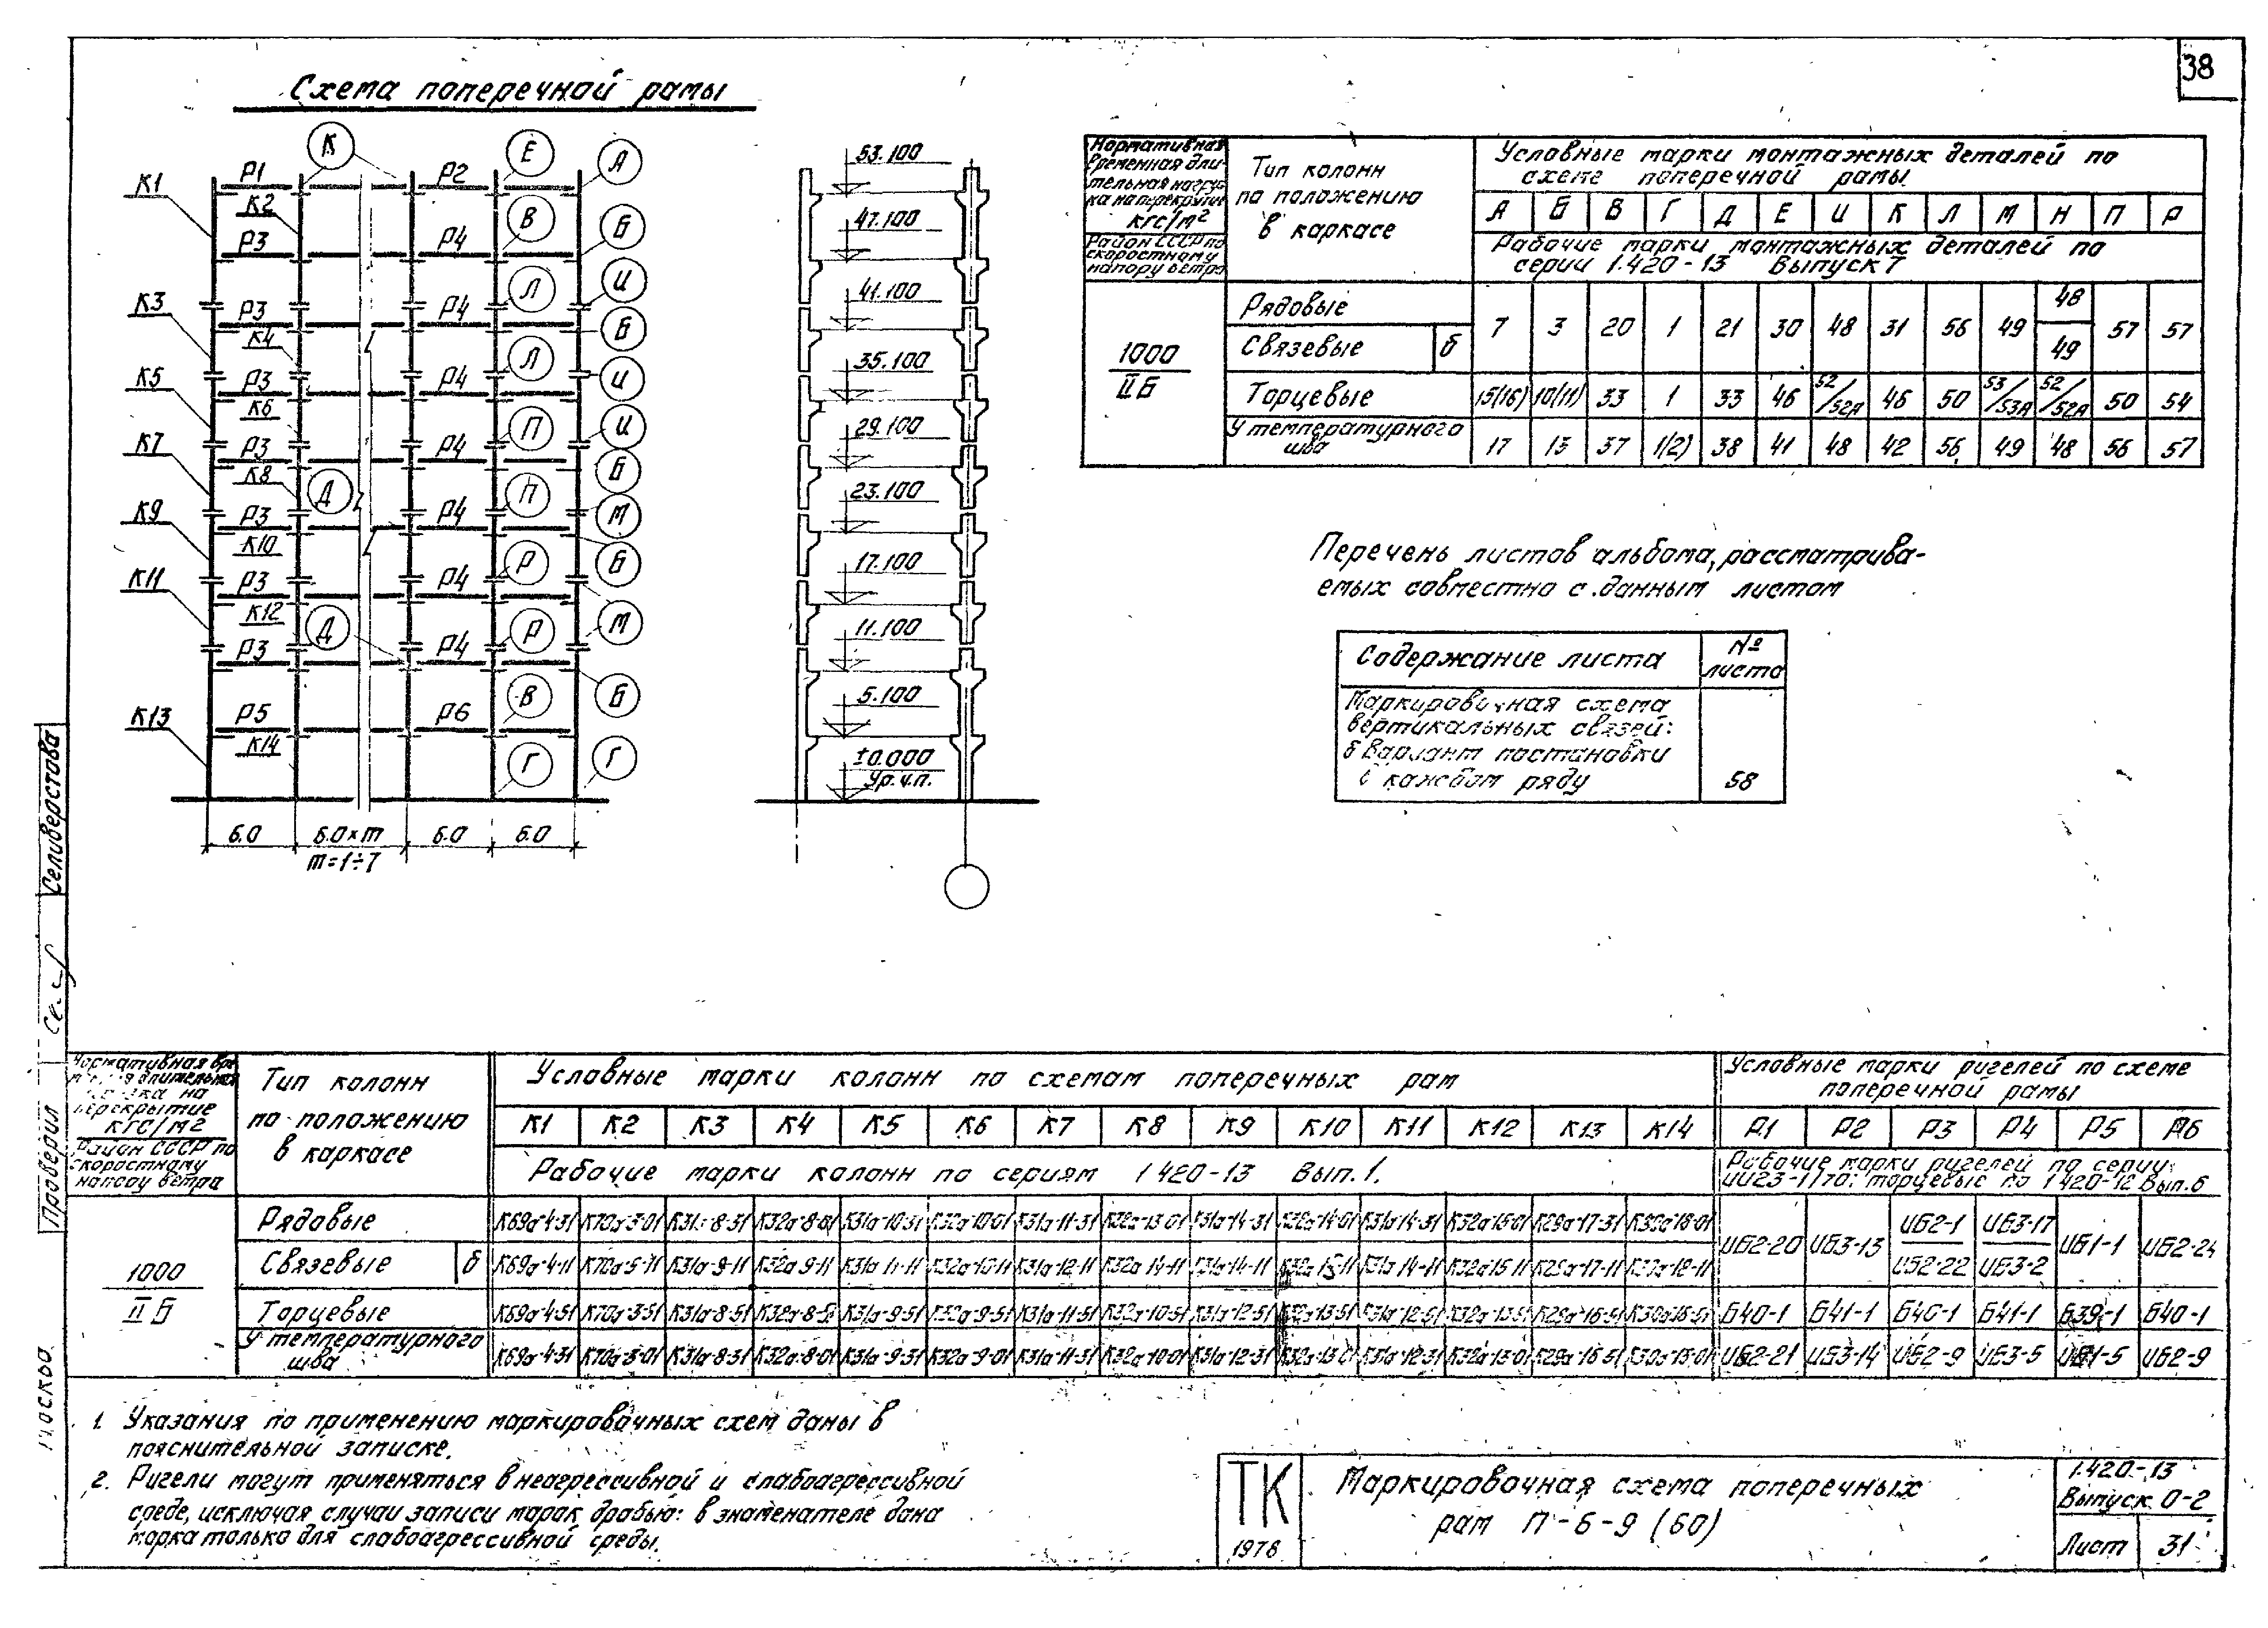 38
Схема поперечной рамы
К Е А
К1 Р1 Р2
К2 В Б
Р3 Р4
Л И
К3 Р3 Р4 Б
К4 Л
К5 Р3 Р4 И
К6 П И
К7 Р3 Р4
К8 Д П Б
К9 Р3 Р4 М
К10 Р Б
К11 Р3 Р4
К12 Д Р М
Р3 Р4
В Б
К13 Р5 Р6
К14 Г Г
6.0 6.0×m 6.0 6.0
m=1÷7
53.100
47.100
41.100
35.100
29.100
23.100
17.100
11.100
5.100
±0.000
Ур.ч.п.
Нормативная
временная дли-
тельная нагруз-
ка на перекрытие
кгс/м2
Район СССР по
скоростному
напору ветра
Тип колонн
по положению
в каркасе
Условные марки монтажных деталей по
схеме поперечной рамы
А Б В Г Д Е И К Л М Н П Р
Рабочие марки монтажных деталей по
серии 1.420-13 Выпуск 7
1000
II Б
Рядовые
Связевые б
7 3 20 1 21 30 48 31 56 49 48/49 57 57
Торцевые 15(16) 10(11) 33 1 33 46 52/52А 46 50 53/53А 52/52А 50 54
У температурного
шва 17 13 37 1(2) 38 41 48 42 56 49 48 56 57
Перечень листов альбома, рассматрива-
емых совместно с данным листом
Содержание листа
№
листа
Маркировочная схема
вертикальных связей:
б вариант постановки
в каждом ряду 58
Тип колонн
по положению
в каркасе
перекрытие
кгс/м2
Район СССР по
скоростному
напору ветра
Условные марки колонн по схемам поперечных рам
К1 К2 К3 К4 К5 К6 К7 К8 К9 К10 К11 К12 К13 К14
Рабочие марки колонн по сериям 1 420-13 Вып.1.
Условные марки ригелей по схеме
поперечной рамы
Р1 Р2 Р3 Р4 Р5 Р6
Рабочие марки ригелей по серии
ИИ23-1/70; торцевые по 1 420-12 Вып.6
1000
II Б
Рядовые К69а-4-31 К70а-3-01 К32а-8-01 К31а-10-31 К32а-10-01 К31а-11-31 К32а-13-01 К31а-14-31 К32а-14-01 К31а-14-31 К32а-15-01 К29а-17-31 К30а-18-01
Связевые б К69а-4-11 К70а-5-11 К31а-9-11 К32а-9-11 К31а-11-11 К32а-10-11 К31а-12-11 К32а-14-11 К31а-14-11 К32а-15-11 К31а-14-11 К32а-15-11 К29а-17-11 К30а-18-11
ИБ2-20 ИБ3-13 ИБ2-1/ИБ2-22 ИБ3-17/ИБ3-2 ИБ1-1 ИБ2-24
Торцевые К69а-4-51 К70а-3-51 К31а-8-51 К32а-8-51 К31а-9-51 К32а-9-51 К31а-11-51 К32а-10-51 К31а-12-51 К32а-13-51 К31а-12-51 К32а-13-51 К29а-16-51 К30а-16-51 Б40-1 Б41-1 Б40-1 Б41-1 Б39-1 Б40-1
У температурного
шва К69а-4-31 К70а-3-01 К31а-8-31 К32а-8-01 К31а-9-31 К32а-9-01 К31а-11-31 К32а-10-01 К31а-12-31 К32а-13-01 К31а-12-31 К32а-13-01 ИБ2-21 ИБ3-14 ИБ2-9 ИБ3-5 ИБ1-5 ИБ2-9
1. Указания по применению маркировочных схем даны в
пояснительной записке.
2. Ригели могут применяться в неагрессивной и слабоагрессивной
среде, исключая случаи записи марок дробью: в знаменателе дана
марка только для слабоагрессивной среды.
ТК
1976
Маркировочная схема поперечных
рам П-6-9 (60)
1.420-13
Выпуск 0-2
Лист 31
Селиверстова
Проверил
Москва